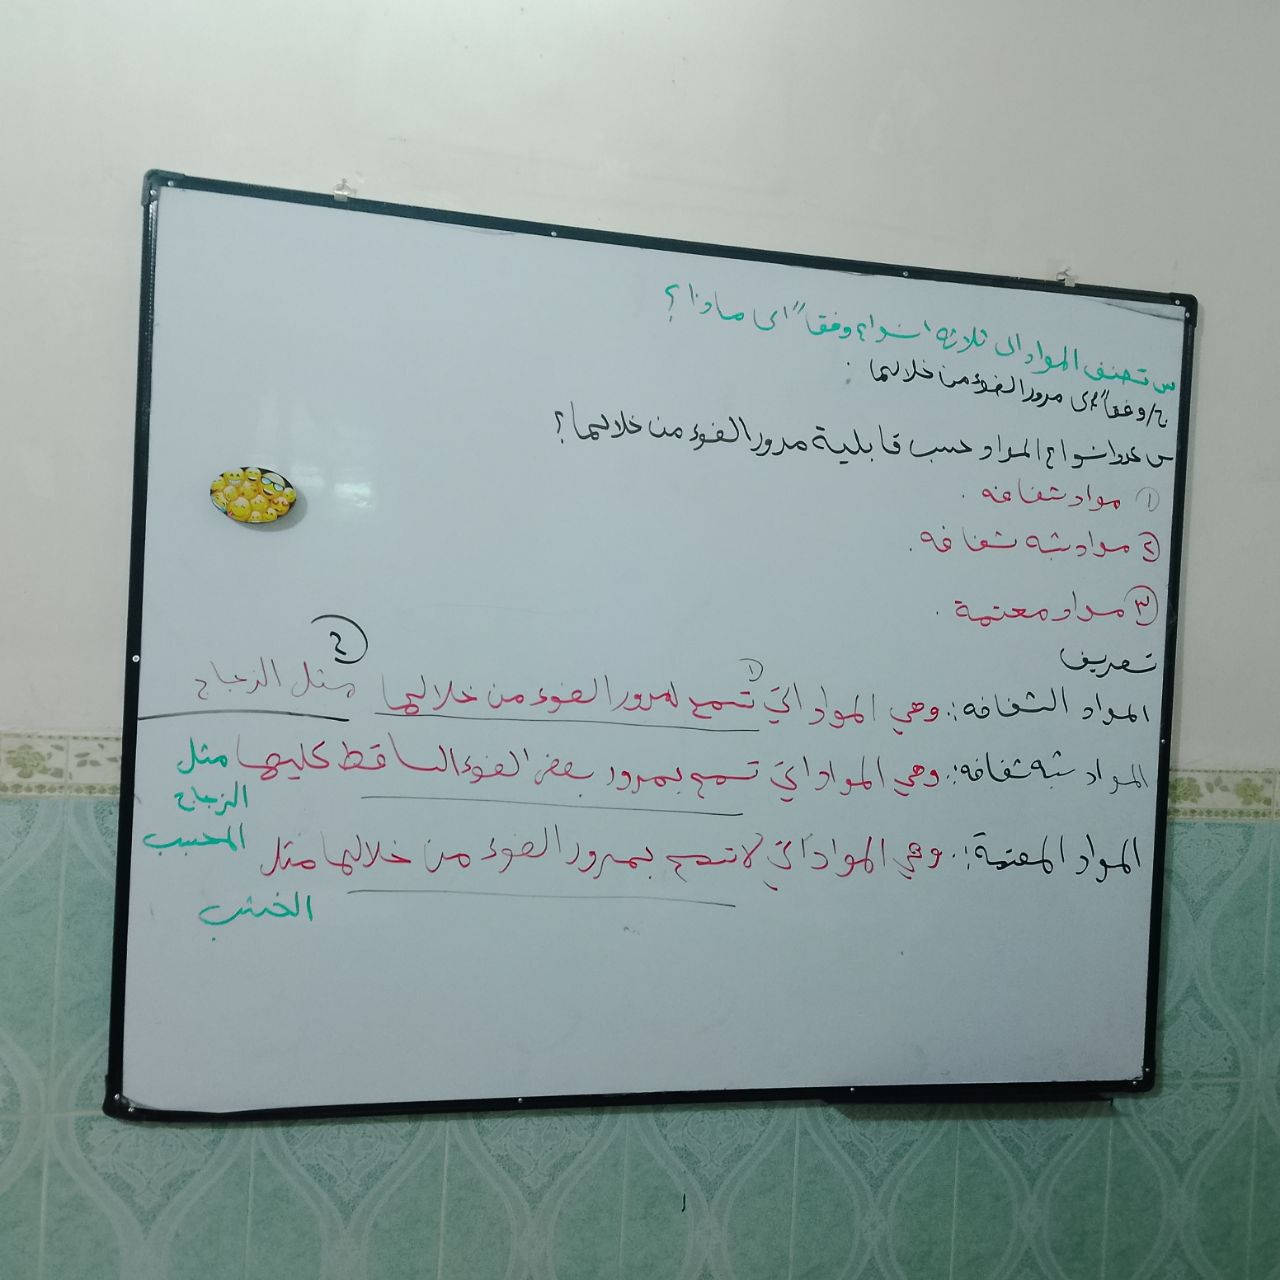 س تصنف المواد الى ثلاثه انواع وفقا" الى ماذا ؟
ج/ وفقا" الى مرور الضوء من خلالها .
س عدد انواع المواد حسب قابلية مرور الضوء من خلالها ؟
① مواد شفافه .
② مواد شبه شفافه .
③ مواد معتمة .
تعريف
المواد الشفافه :. وهي المواد التي تسمح لمرور الضوء من خلالها مثل الزجاج
المواد شبه شفافه :. وهي المواد التي تسمح بمرور بعض الضوء الساقط عليها مثل
الزجاج
المحبب
المواد المعتمة :. وهي المواد التي لا تسمح بمرور الضوء من خلالها مثل
الخشب